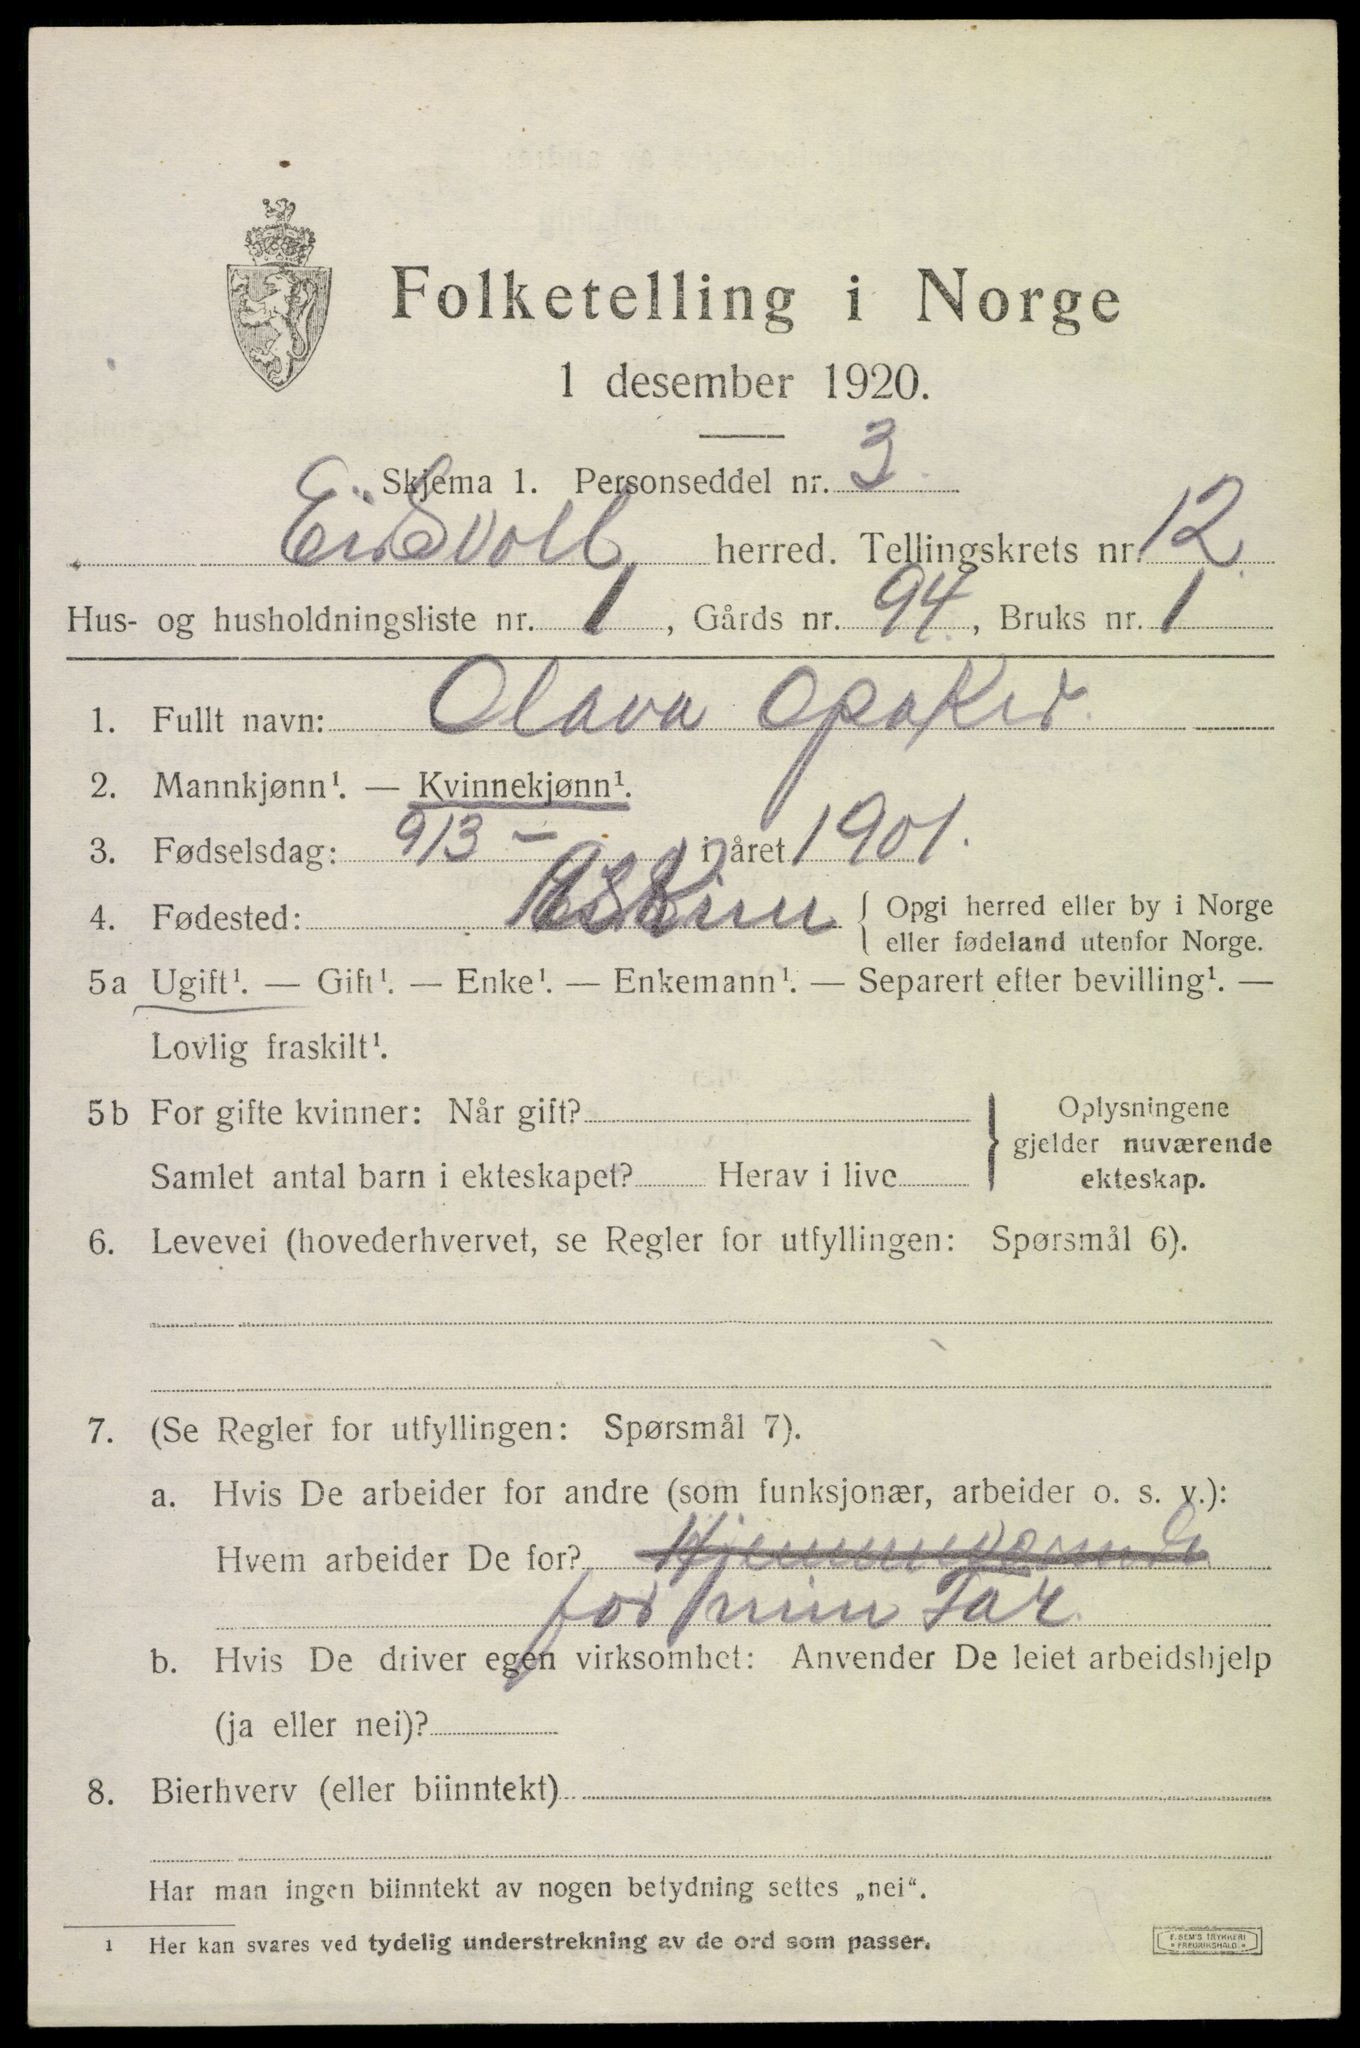 Folketelling i Norge
1 desember 1920.
Skjema 1. Personseddel nr. 3.
Eidsvoll herred. Tellingskrets nr. 12.
Hus- og husholdningsliste nr. 1, Gårds nr. 94., Bruks nr. 1
1. Fullt navn: Olava Opaker.
2. Mannkjønn¹. — Kvinnekjønn¹.
3. Fødselsdag: 9/3 – i året 1901.
4. Fødested: Askim { Opgi herred eller by i Norge
eller fødeland utenfor Norge.
5a Ugift¹. — Gift¹. — Enke¹. — Enkemann¹. — Separert efter bevilling¹. —
Lovlig fraskilt¹.
5b For gifte kvinner: Når gift?
Samlet antal barn i ekteskapet? Herav i live
} Oplysningene
gjelder nuværende
ekteskap.
6. Levevei (hovederhvervet, se Regler for utfyllingen: Spørsmål 6).
7. (Se Regler for utfyllingen: Spørsmål 7).
a. Hvis De arbeider for andre (som funksjonær, arbeider o. s. v.):
Hvem arbeider De for? Hjemmeværende
for min Far.
b. Hvis De driver egen virksomhet: Anvender De leiet arbeidshjelp
(ja eller nei)?
8. Bierhverv (eller biinntekt)
Har man ingen biinntekt av nogen betydning settes „nei“.
1 Her kan svares ved tydelig understrekning av de ord som passer.
F. SEM'S TRYKKERI
• FREDRIKSHALD •